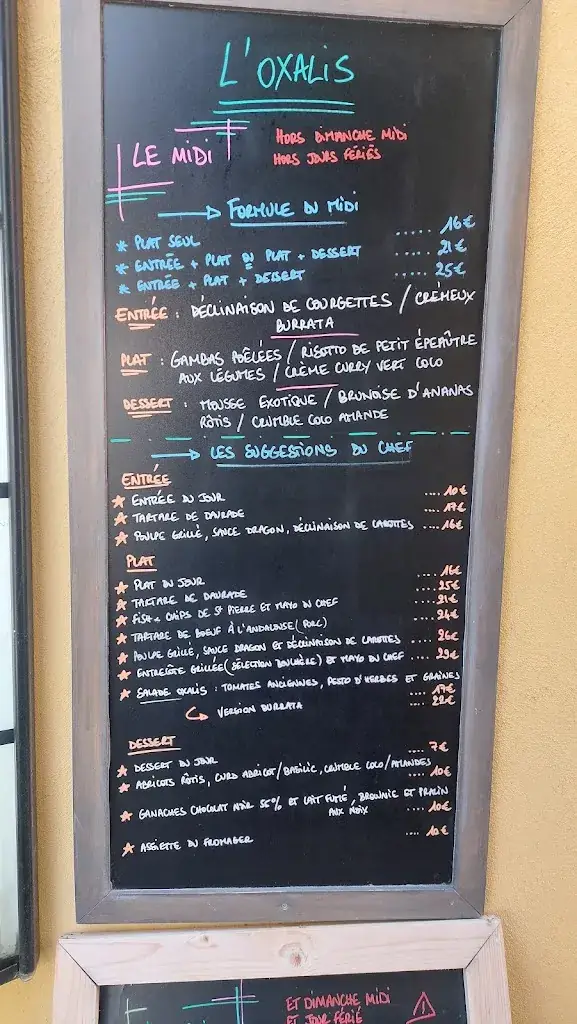 L'OXALIS
LE MIDI
HORS DIMANCHE MIDI
HORS JOURS FÉRIÉS
FORMULE DU MIDI
* PLAT SEUL ..... 16€
* ENTRÉE + PLAT OU PLAT + DESSERT ..... 21€
* ENTRÉE + PLAT + DESSERT ..... 25€
ENTRÉE : DÉCLINAISON DE COURGETTES / CRÉMEUX
BURRATA
PLAT : GAMBAS POÊLÉES / RISOTTO DE PETIT ÉPEAÛTRE
AUX LÉGUMES / CRÈME CURRY VERT COCO
DESSERT : MOUSSE EXOTIQUE / BRUNOISE D'ANANAS
RÔTIS / CRUMBLE COCO AMANDE
LES SUGGESTIONS DU CHEF
ENTRÉE
ENTRÉE DU JOUR .... 10€
TARTARE DE DAURADE .... 17€
POULPE GRILLÉ, SAUCE DRAGON, DÉCLINAISON DE CAROTTES .... 16€
PLAT
PLAT DU JOUR .... 16€
TARTARE DE DAURADE .... 25€
FISH + CHIPS DE ST PIERRE ET MAYO DU CHEF .... 21€
TARTARE DE BOEUF À L'ANDALOUSE (PORC) .... 24€
POULPE GRILLÉ, SAUCE DRAGON ET DÉCLINAISON DE CAROTTES .... 26€
ENTRECÔTE GRILLÉE (SÉLECTION BOUCHÈRE) ET MAYO DU CHEF .... 29€
SALADE OXALIS : TOMATES ANCIENNES, PESTO D'HERBES ET GRAINES
.... 17€
VERSION BURRATA .... 22€
DESSERT
DESSERT DU JOUR .... 7€
ABRICOTS RÔTIS, CURD ABRICOT/BASILIC, CRUMBLE COCO/AMANDES .... 10€
GANACHES CHOCOLAT NOIR 56% ET LAIT FUMÉ, BROWNIE ET PRALIN
AUX NOIX .... 10€
ASSIETTE DU FROMAGER .... 10€
ET DIMANCHE MIDI
ET JOUR FÉRIÉ